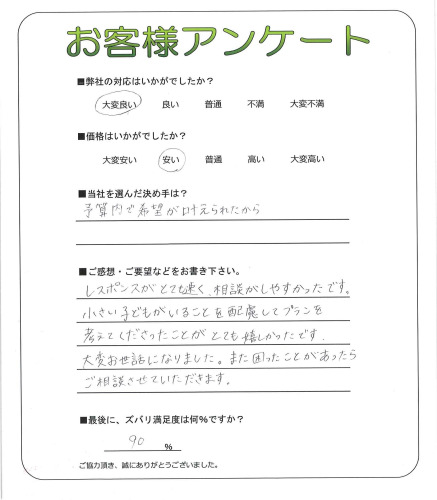 お客様アンケート
■弊社の対応はいかがでしたか?
大変良い 良い 普通 不満 大変不満
■価格はいかがでしたか?
大変安い 安い 普通 高い 大変高い
■当社を選んだ決め手は?
予算内で希望が叶えられたから
■ご感想・ご要望などをお書き下さい。
レスポンスがとても速く、相談がしやすかったです。
小さい子どもがいることを配慮してプランを
考えてくださったことがとても嬉しかったです。
大変お世話になりました。また困ったことがあったら
ご相談させていただきます。
■最後に、ズバリ満足度は何%ですか?
90 %
ご協力頂き、誠にありがとうございました。